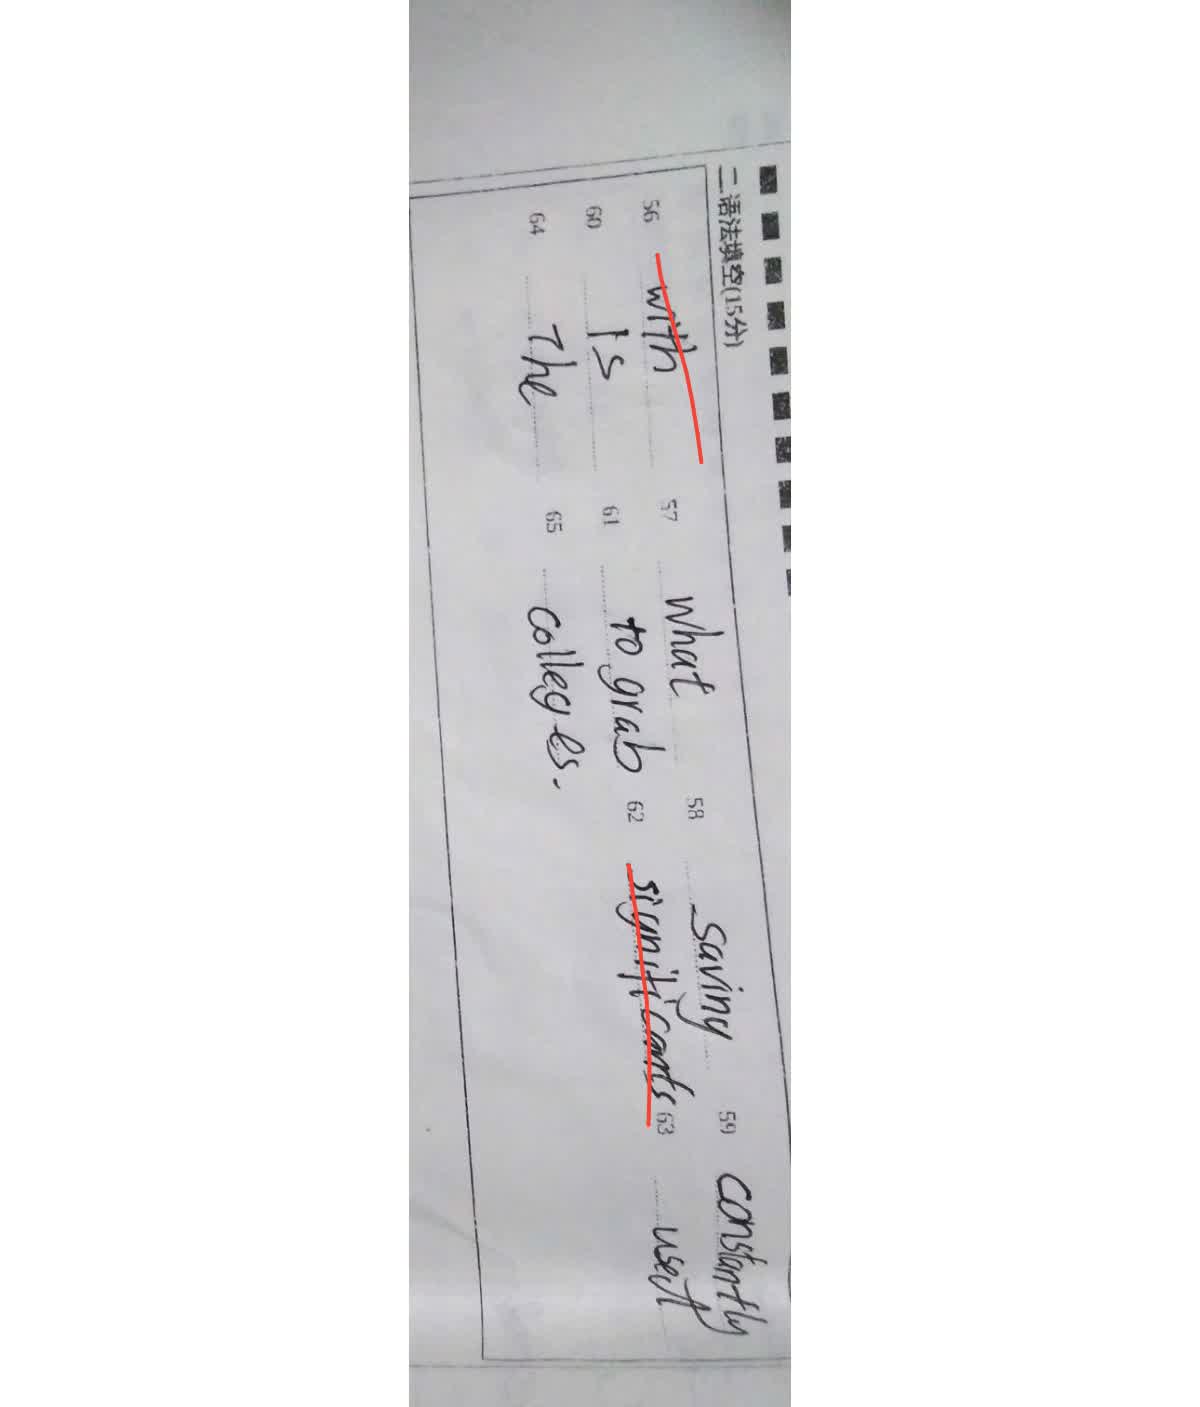 二 语法填空(15分)
56 with 57 what 58 saving 59 constantly
60 Is 61 to grab 62 significants 63 used
64 The 65 colleges.